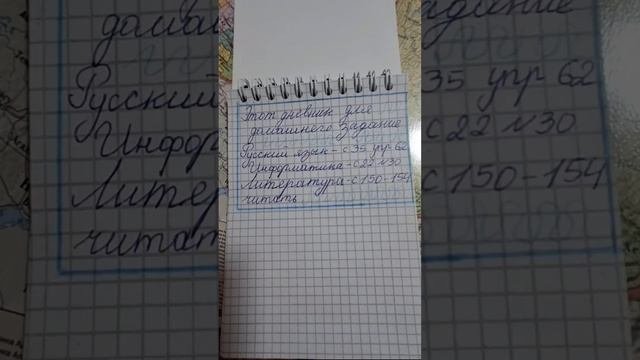 Этот дневник для
домашнего задание
Русский язык - с 35 упр 62
Информатика - с 22 №30
Литература - с 150-154
читать